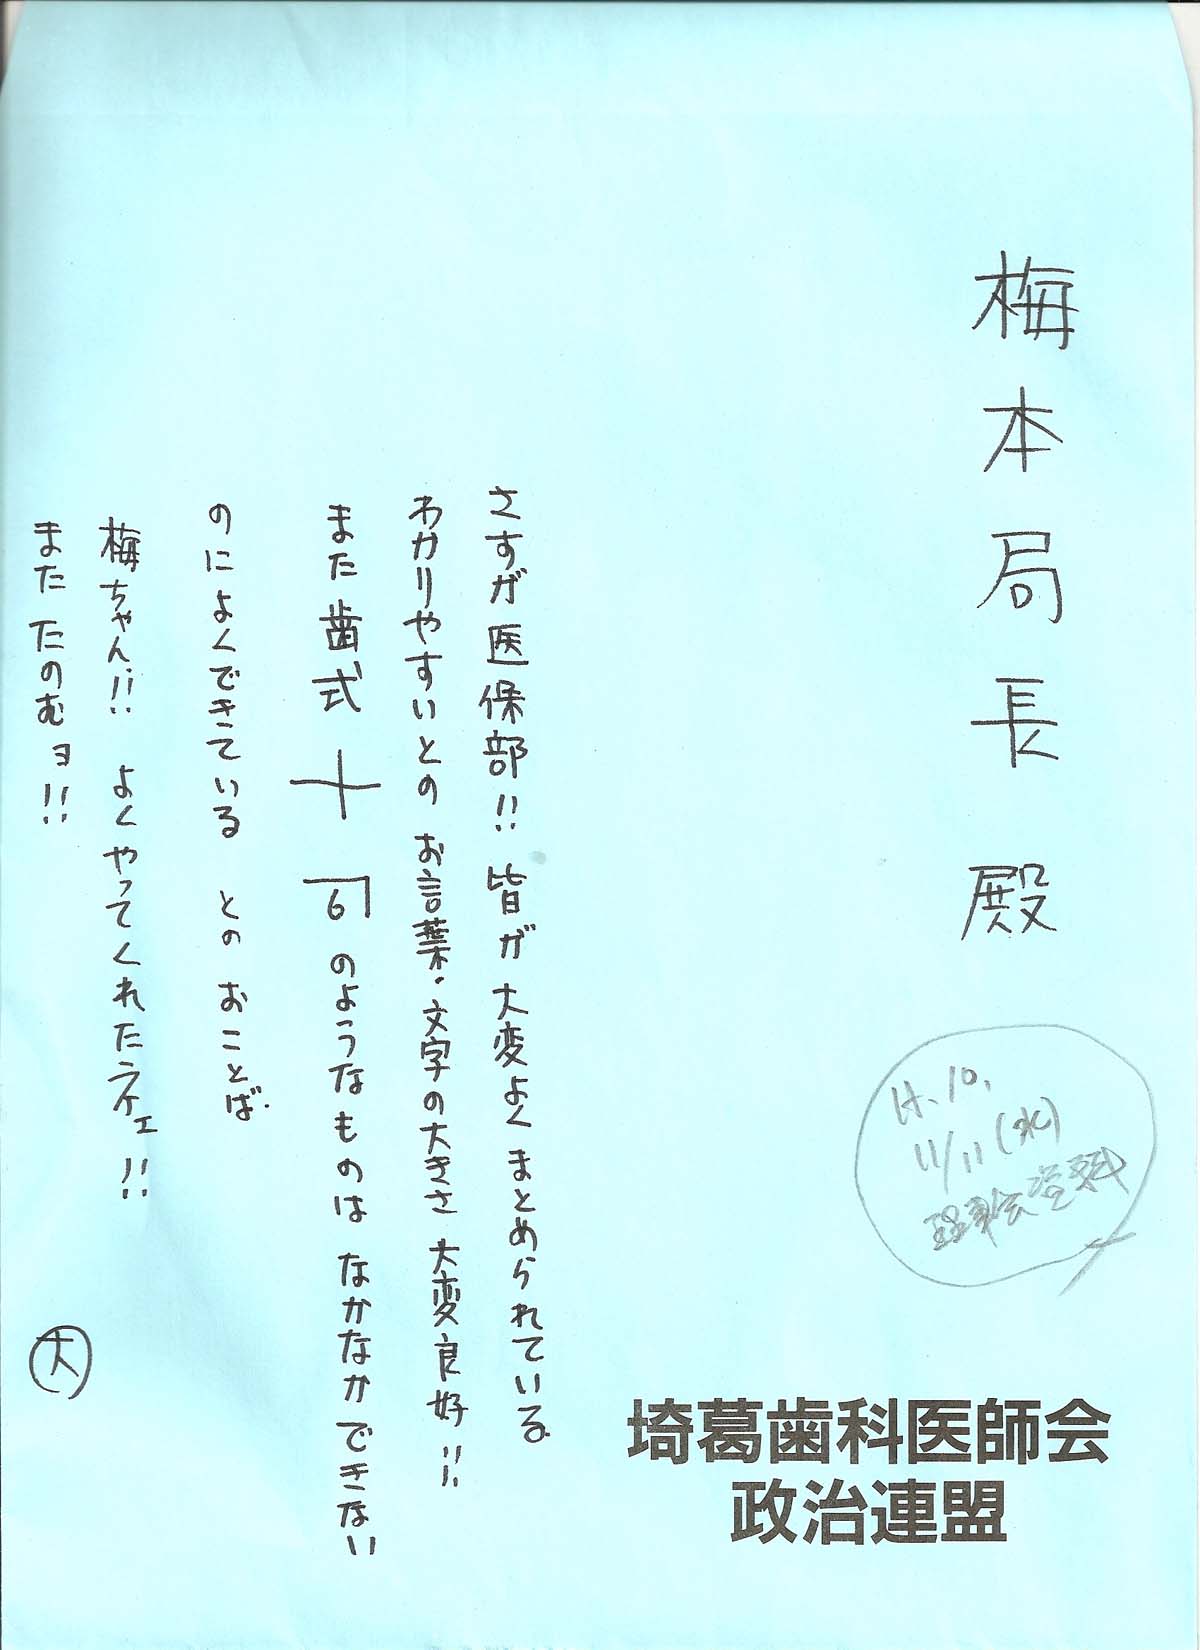 梅本局長 殿
さすが医保部!! 皆が大変よくまとめられている
わかりやすいとの お言葉・文字の大きさ 大変良好!!
また歯式 十 6 のようなものは なかなかできない
のによくできている とのおことば
梅ちゃん!! よくやってくれたネェ!!
また たのむョ!!
大
H.10.
11/11(水)
理事会資料
埼葛歯科医師会
政治連盟